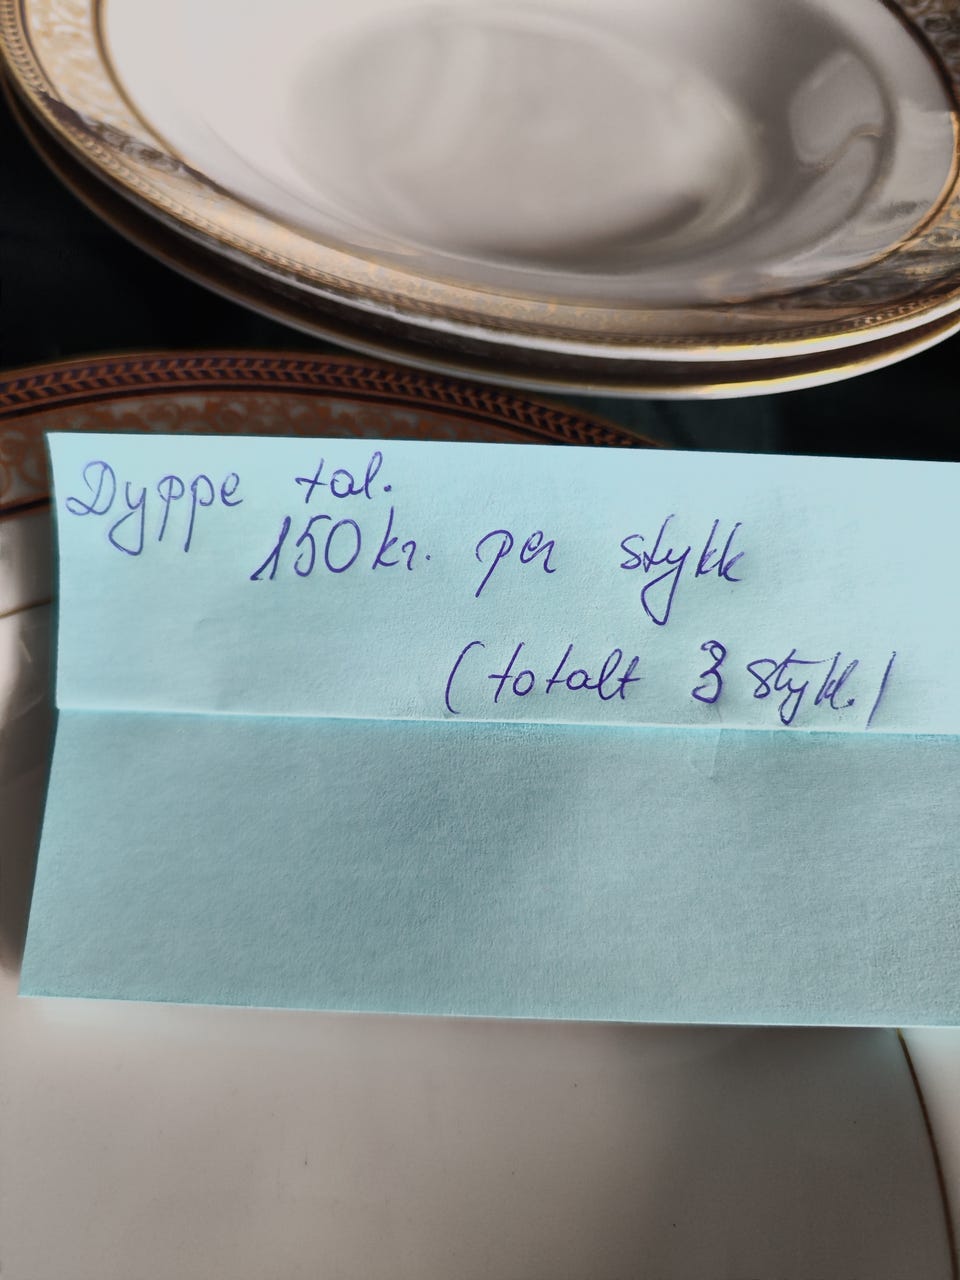 Dyppe tal.
150 kr. per stykk
(totalt 3 stykk.)